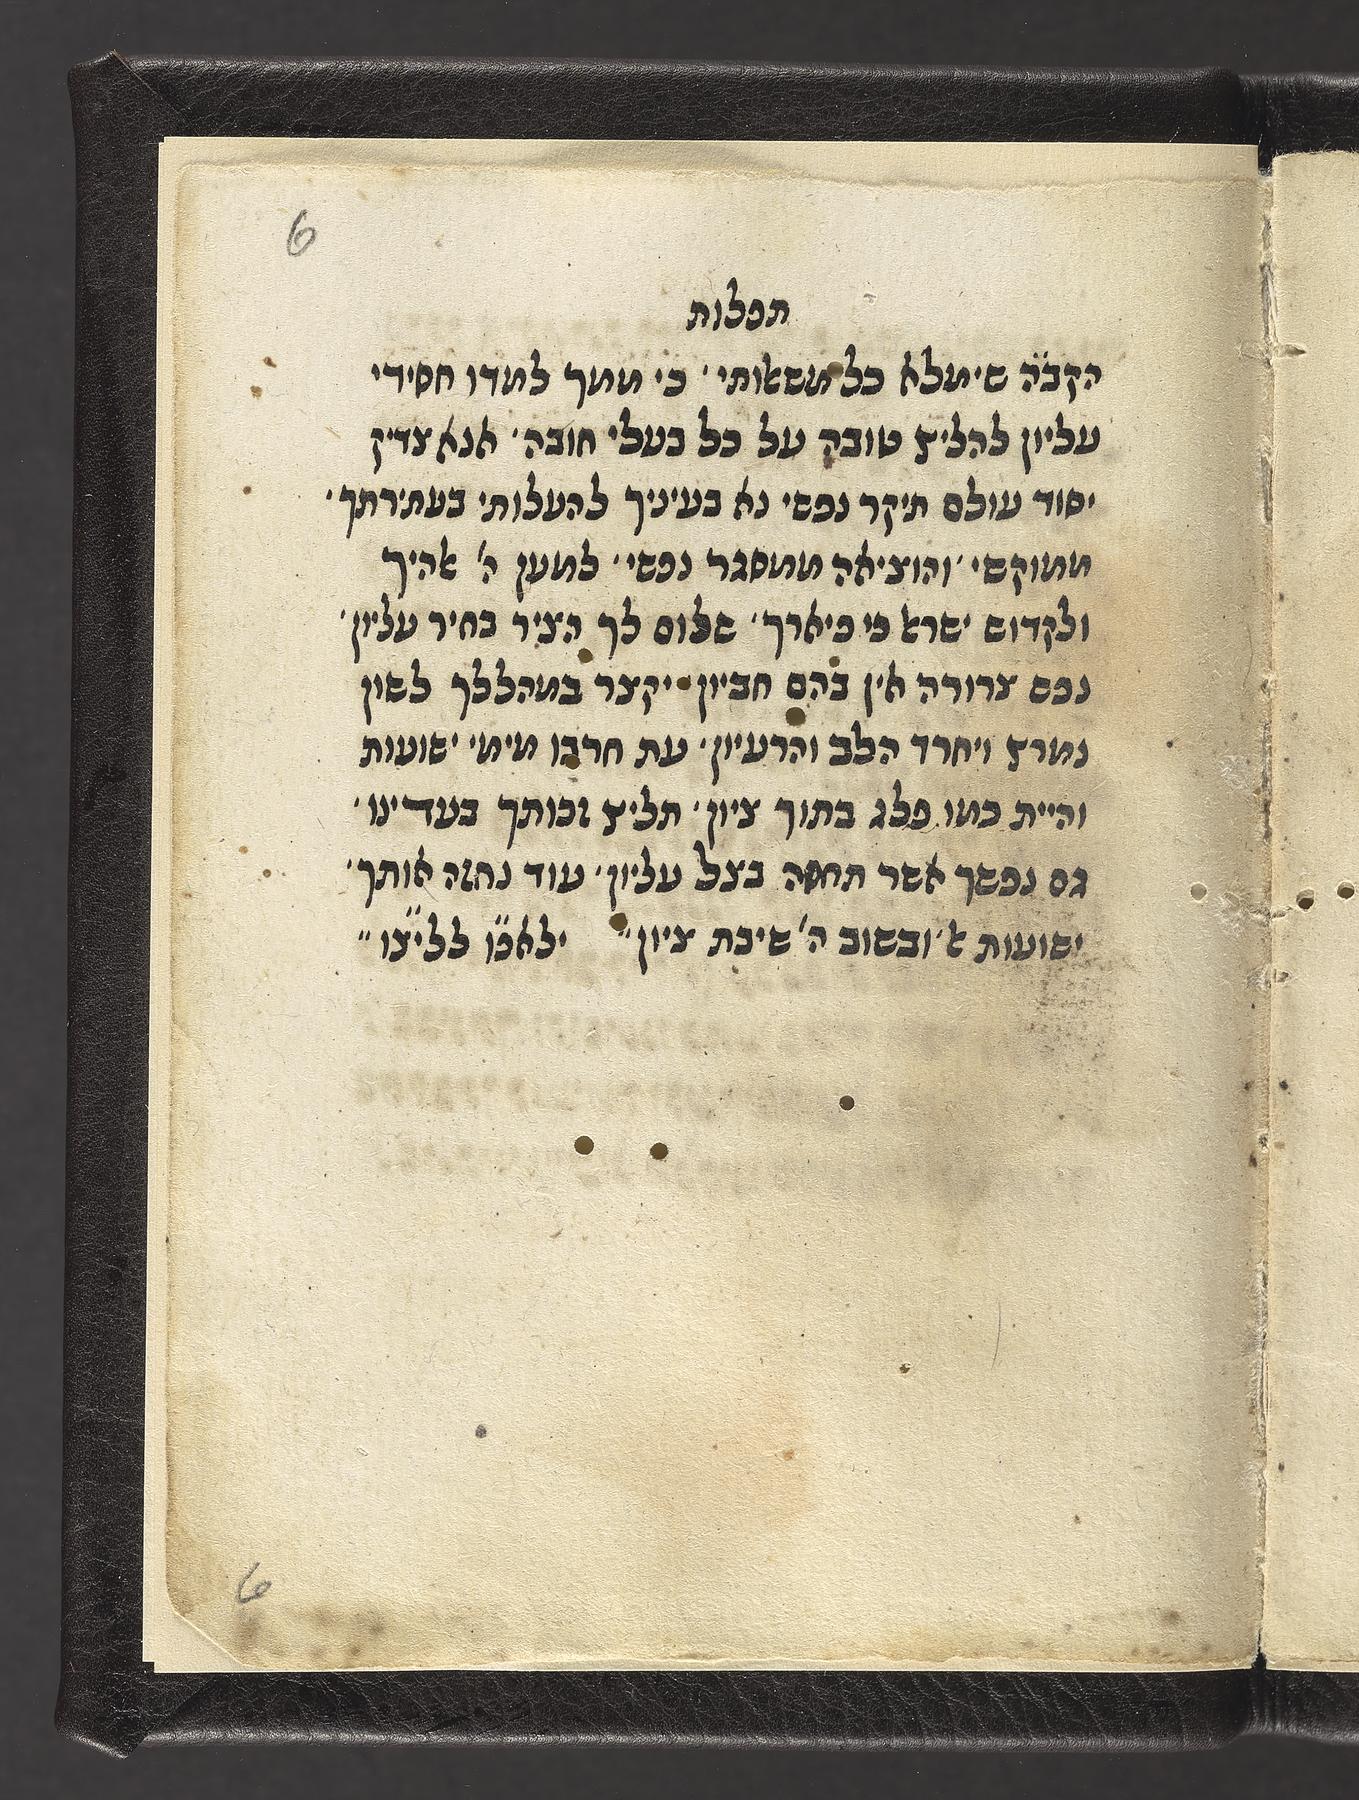 6
תפלות
הקב״ה שימלא כל משאותי׳ כי ממך למדו חסידי
עליון להליץ טובה על כל בעלי חובה׳ אנא צדיק
יסוד עולם תיקר נפשי נא בעיניך להעלותי בעתירתך׳
ממוקשי׳ והוציאה ממסגר נפשי׳ למען ה׳ אהיך
ולקדוש ישראל כי פיארך׳ שלום לך הציר בחיר עליון׳
נפש צרורה אין בהם חביון׳ יקצר במהללך לשון
נמרץ ויחרד הלב והרעיון׳ עת חרבו מימי ישועות
והיית כמו פלג בתוך ציון׳ תליץ זכותך בעדינו׳
גם נפשך אשר תחסה בצל עליון׳ עוד נחזה אותך׳
ישועות אל ובשוב ה׳ שיבת ציון״ ילאכ״ו לליצ״ו״
6